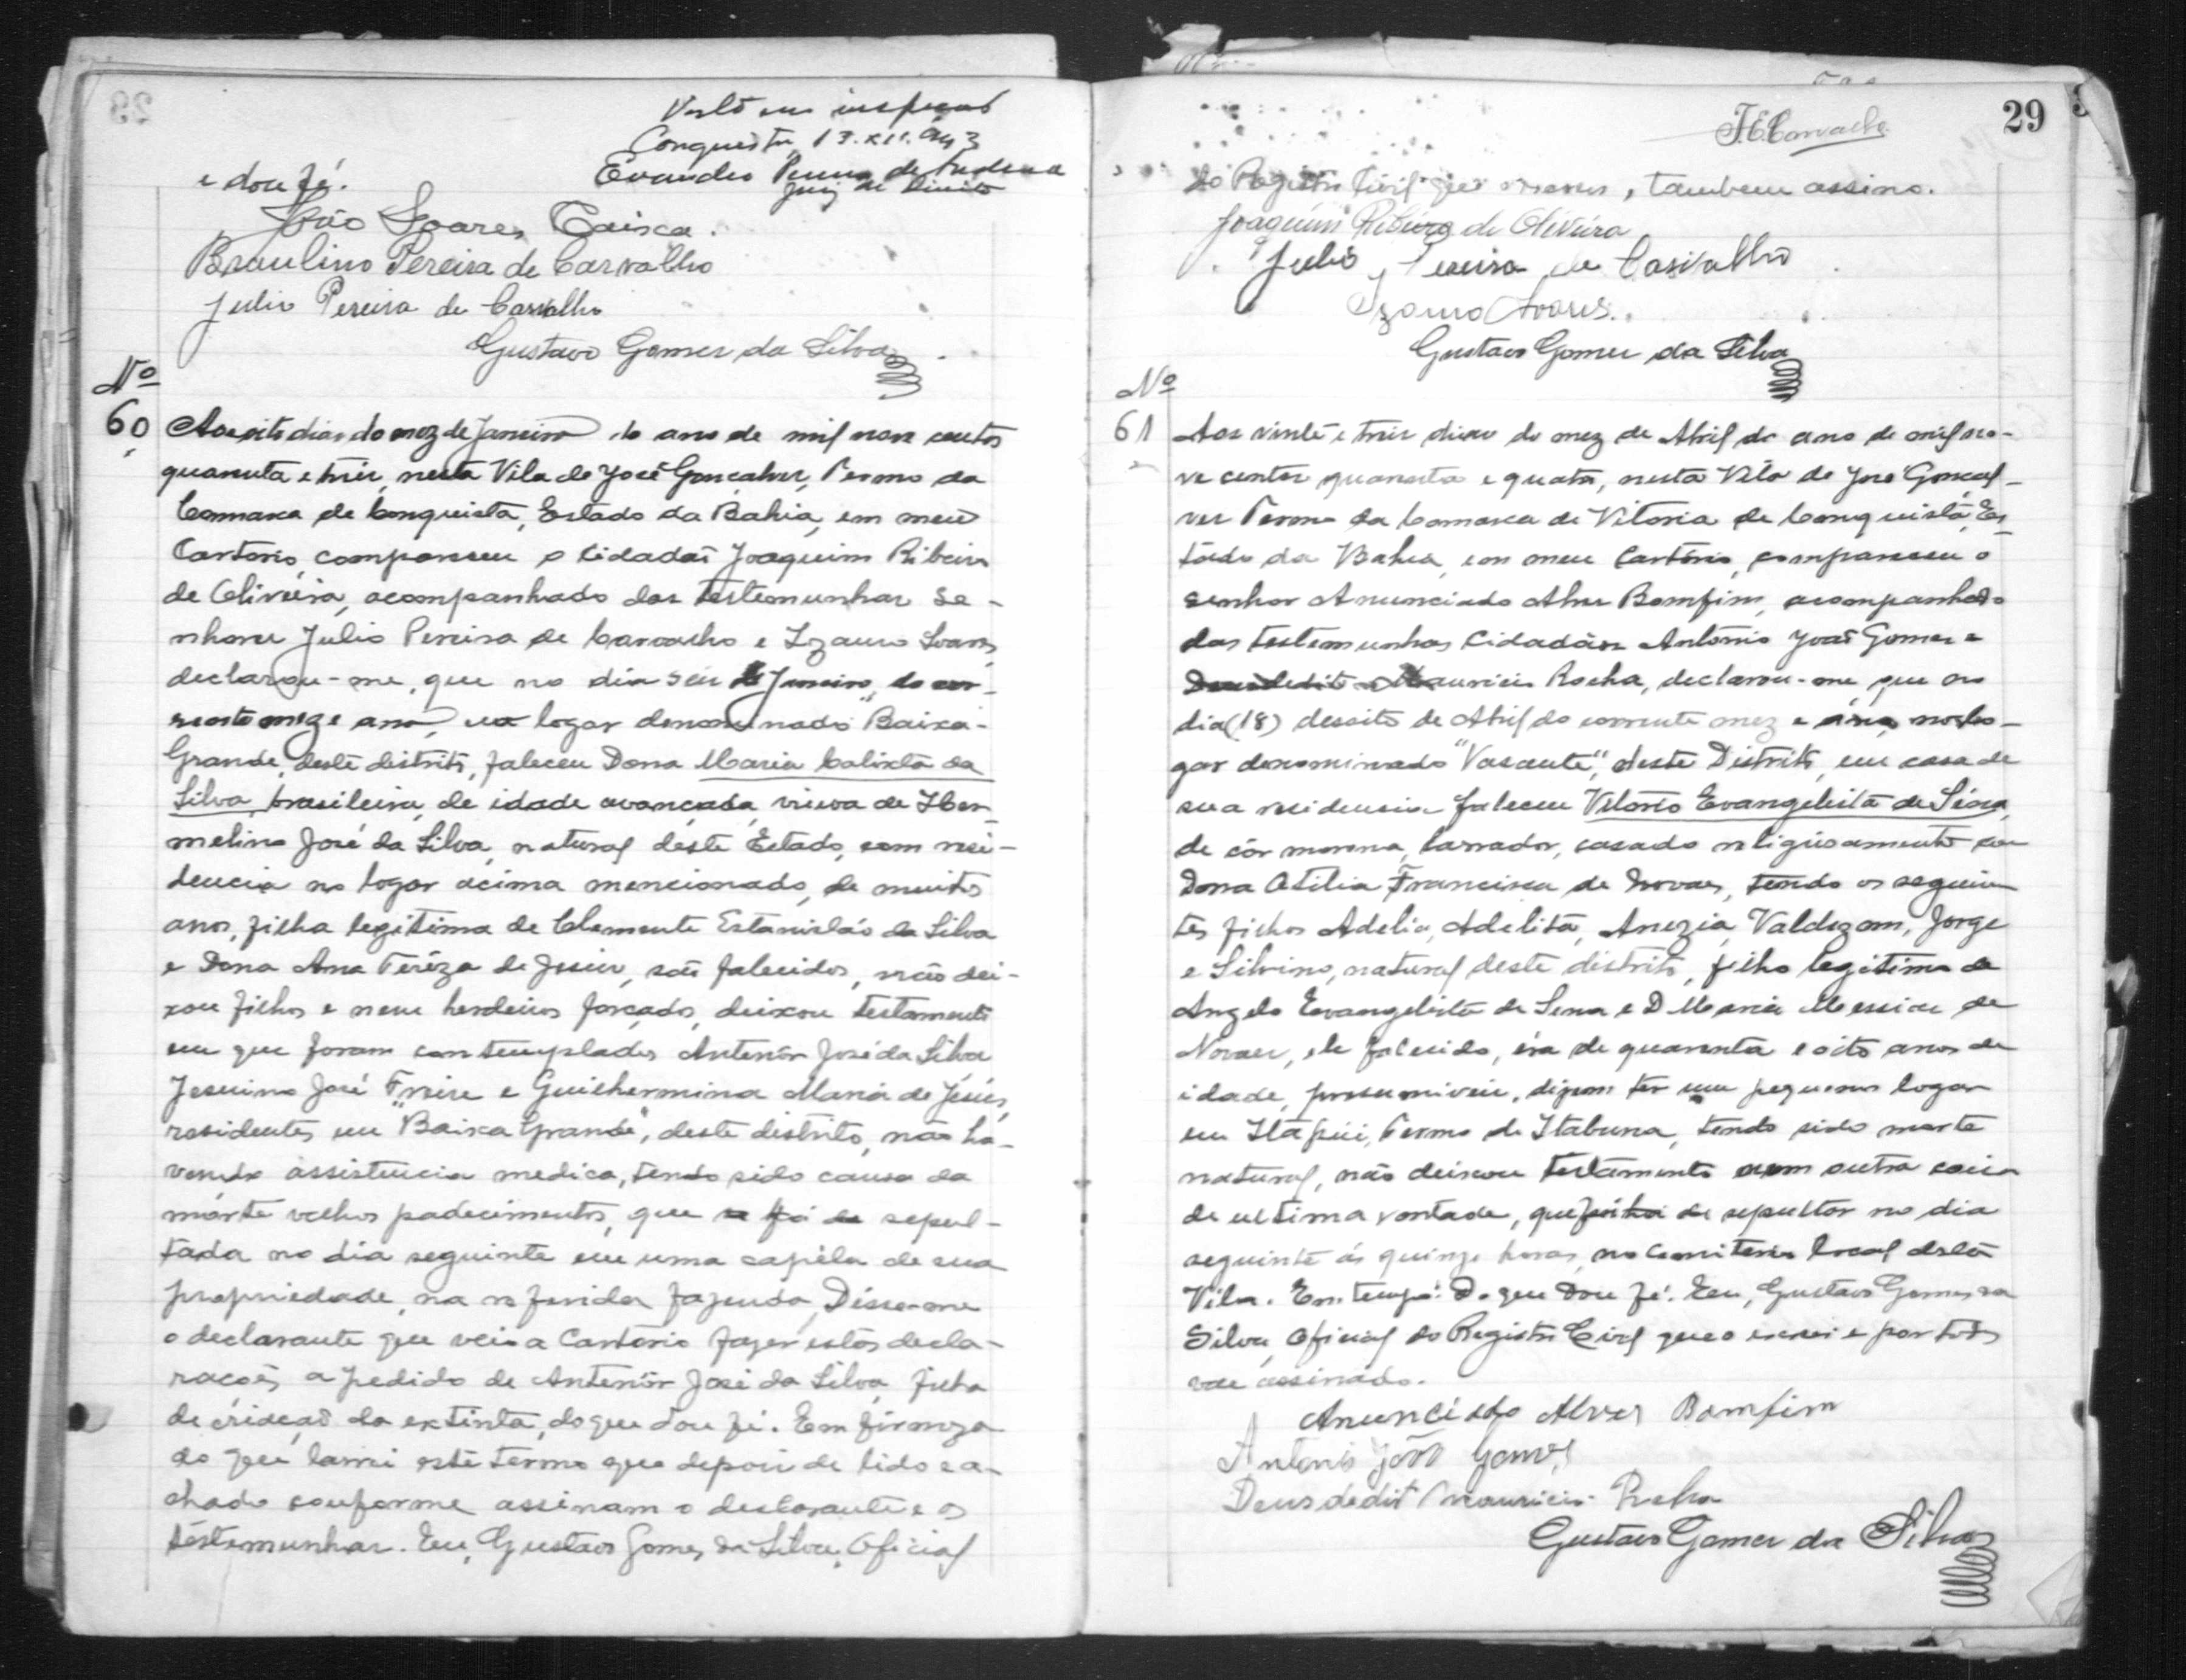 Visto em inspeção
Conquista, 13.XII.943
Evandro
Juiz de Direito
e dou fé.
João Soares
Braulino Pereira de Carvalho
Julio Pereira de Carvalho
Gustavo Gomes da Silva
Nº
60
Aos oito dias do mez de Janeiro do ano de mil nove centos
quarenta e trêis, nesta Vila de José Gonçalves, Termo da
Comarca de Conquista, Estado da Bahia, em meu
Cartório, compareceu o Cidadaõ Joaquim Ribeiro
de Oliveira, acompanhado das testemunhas Se-
nhores Julio Pereira de Carvalho e Izauro Soares,
declarou-me, que no dia seis de Janeiro, do cor-
rente mez e ano, no logar denominado "Baixa-
Grande, deste distrito, faleceu Dona Maria Calixta da
Silva, brasileira, de idade avançada, viuva de Her-
melino José da Silva, natural déste Estado, com resi-
dencia no logar acima mencionado, de muitos
anos, filha legitima de Clemente Estanisláo da Silva
e Dona Ana Teréza de Jesus, saõ falecidos, não dei-
xou filhos e nem herdeiros forçados, deixou testamento
em que foram contemplados Antenôr José da Silva
Jesuino José Freire e Guilhermina Maria de Jesús,
residentes em "Baixa Grande", deste distrito, não ha-
vendo assistencia medica, tendo sido causa da
mórte velhos padecimentos, que foi sepul-
tada no dia seguinte em uma capéla de sua
propriedade, na referida fazenda, Disse-me
o declarante que veio a Cartório fazer estas decla-
rações a pedido de Antenôr José da Silva, filho
de criaçaõ da extinta, do que dou fé. Em firmeza
do que lavrei este termo que depois de lido e a-
chado conforme assinam o declarante e as
téstemunhas. Eu, Gustavo Gomes da Silva, Oficial
29
do Registro Civil que escrevi, tambem assino.
Joaquim Ribeiro de Oliveira
Julio Pereira de Carvalho
Izauro Soares.
Gustavo Gomes da Silva
Nº
61
Aos vinte e treis dias do mez de Abril do ano de mil no-
ve centos quarenta e quatro, nesta Vila de José Gonçal-
ves Termo da Comarca de Vitoria da Conquista, Es
tado da Bahia, em meu Cartório, compareceu o
senhor Anunciado Alves Bomfim, acompanhado
das testemunhas Cidadãos Antonio Joaõ Gomes e
Deusdedit Mauricio Rocha, declarou-me que no
dia (18) desoito de Abril do corrente mez e áno, no lo-
gar denominado "Vasante", deste Distrito, em casa de
sua residencia faleceu Vitorio Evangelista de Sena,
de côr morena, lavrador, casado religiosamente com
Dona Otilia Francisca de Novaes, tendo os seguin
tes filhos Adelia, Adelita, Anezia, Valdezom, Jorge
e Silvino, natural deste distrito, filho legitimo de
Angelo Evangelista de Sena e D Maria Messias de
Novaes, ele falecido, éra de quarenta e oito anos de
idade, presumiveis, dizem ter um pequeno logar
em Itapúi, Termo de Itabuna, tendo sido morte
natural, não deixou testamento nem outra coisa
de ultima vontade, que de sepultar no dia
seguinte ás quinze horas, no Cemiterio local desta
Vila. Em tempo: Do que dou fé. Eu, Gustavo Gomes da
Silva, Oficial do Registro Civil que o escrevi e por todos
vae assinado.
Anunciado Alves Bomfim
Antonio João Gomes
Deusdedit Mauricio Rocha
Gustavo Gomes da Silva